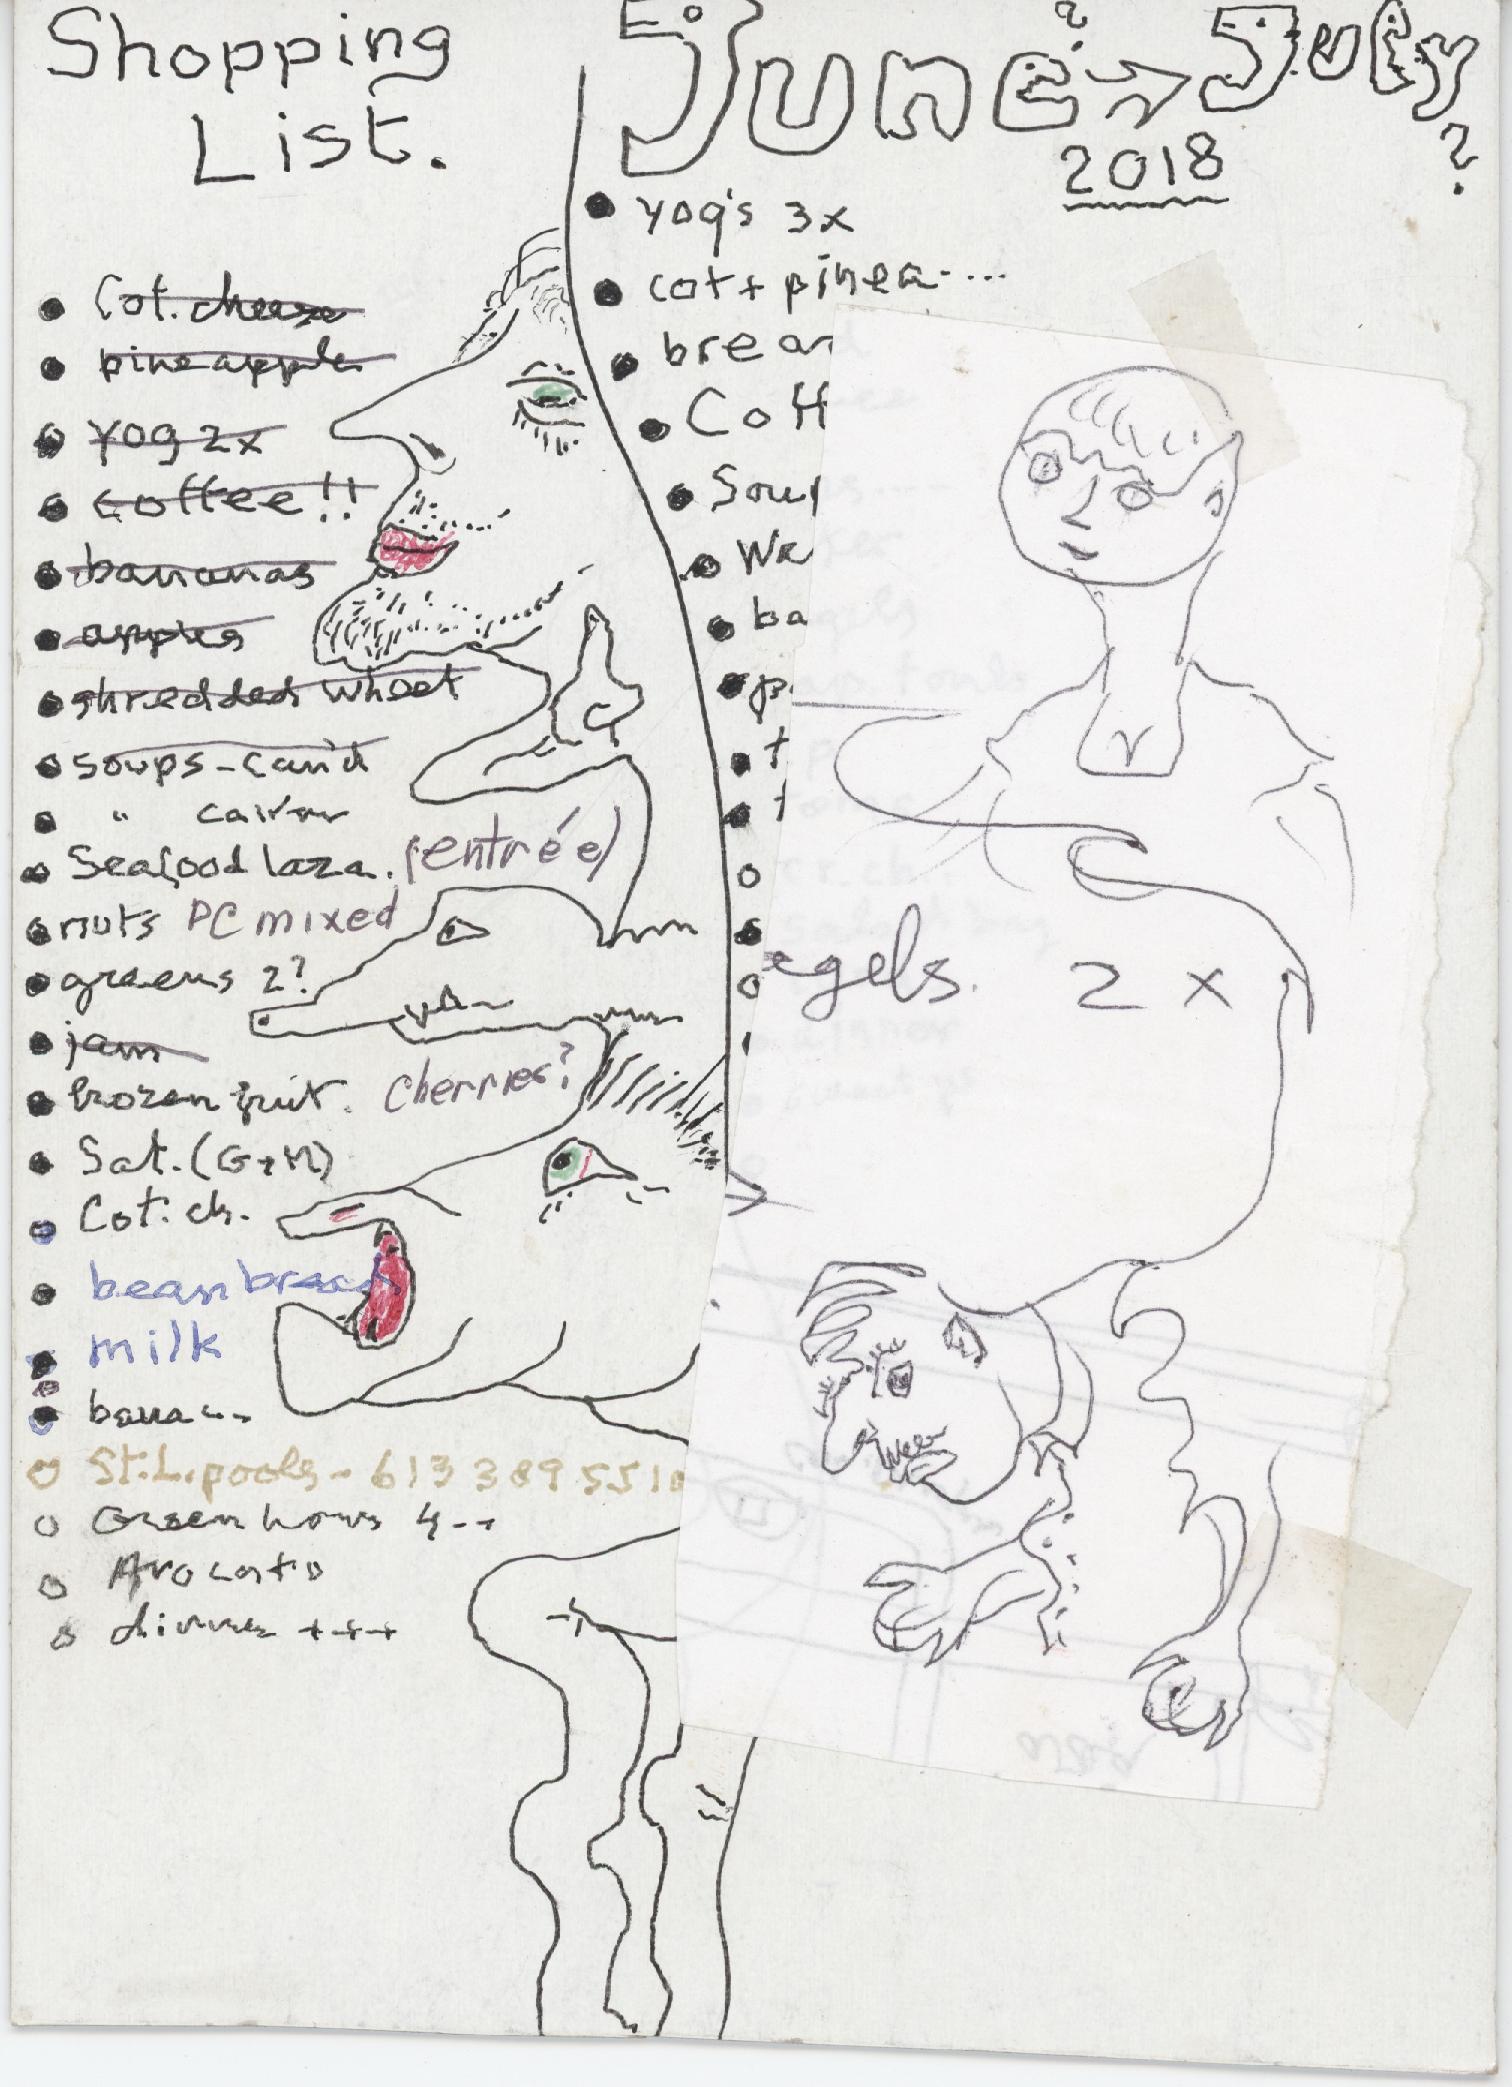 Shopping
List.
• Cot. cheese
• pineapple
• yog 2x
• coffee!!
• bananas
• apples
• shredded wheat
• soups - can'd
• "
• Seafood laza. (entrée)
• nuts PC mixed
• greens 2?
• jam
• frozen fruit. Cherries?
• Sat. (G+M)
• Cot. ch.
• bean bread
• milk
• bana...
○ St. L. pools - 613 389 5510
○ Green 4--
○ Avocato
○ dinner +++
June → July
? ?
2018
• yog's 3x
• cot + pinea....
• bread
• Coff
• Soup
• Wa
• ba
• p
• t
• t
egels. 2 x